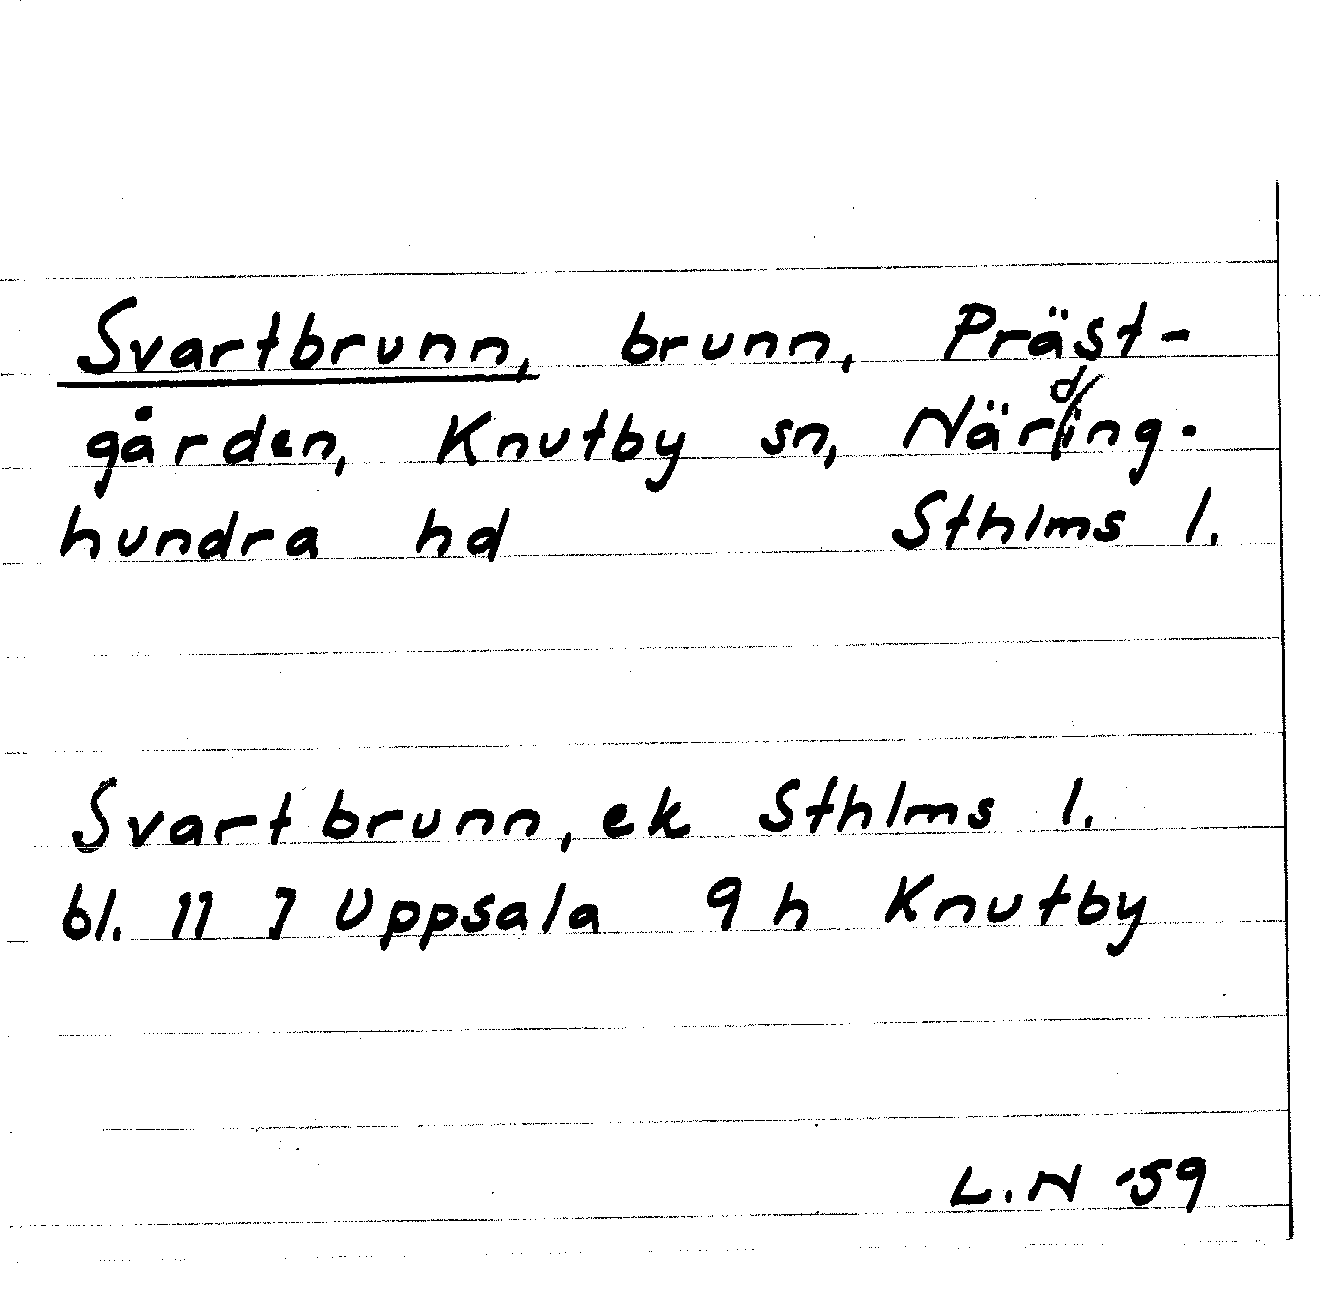 Svartbrunn, brunn, Präst-
gården, Knutby sn, Närding.
hundra hd Sthlms l.
Svartbrunn, ek Sthlms l.
bl. 11 7 Uppsala 9 h Knutby
L.N -59